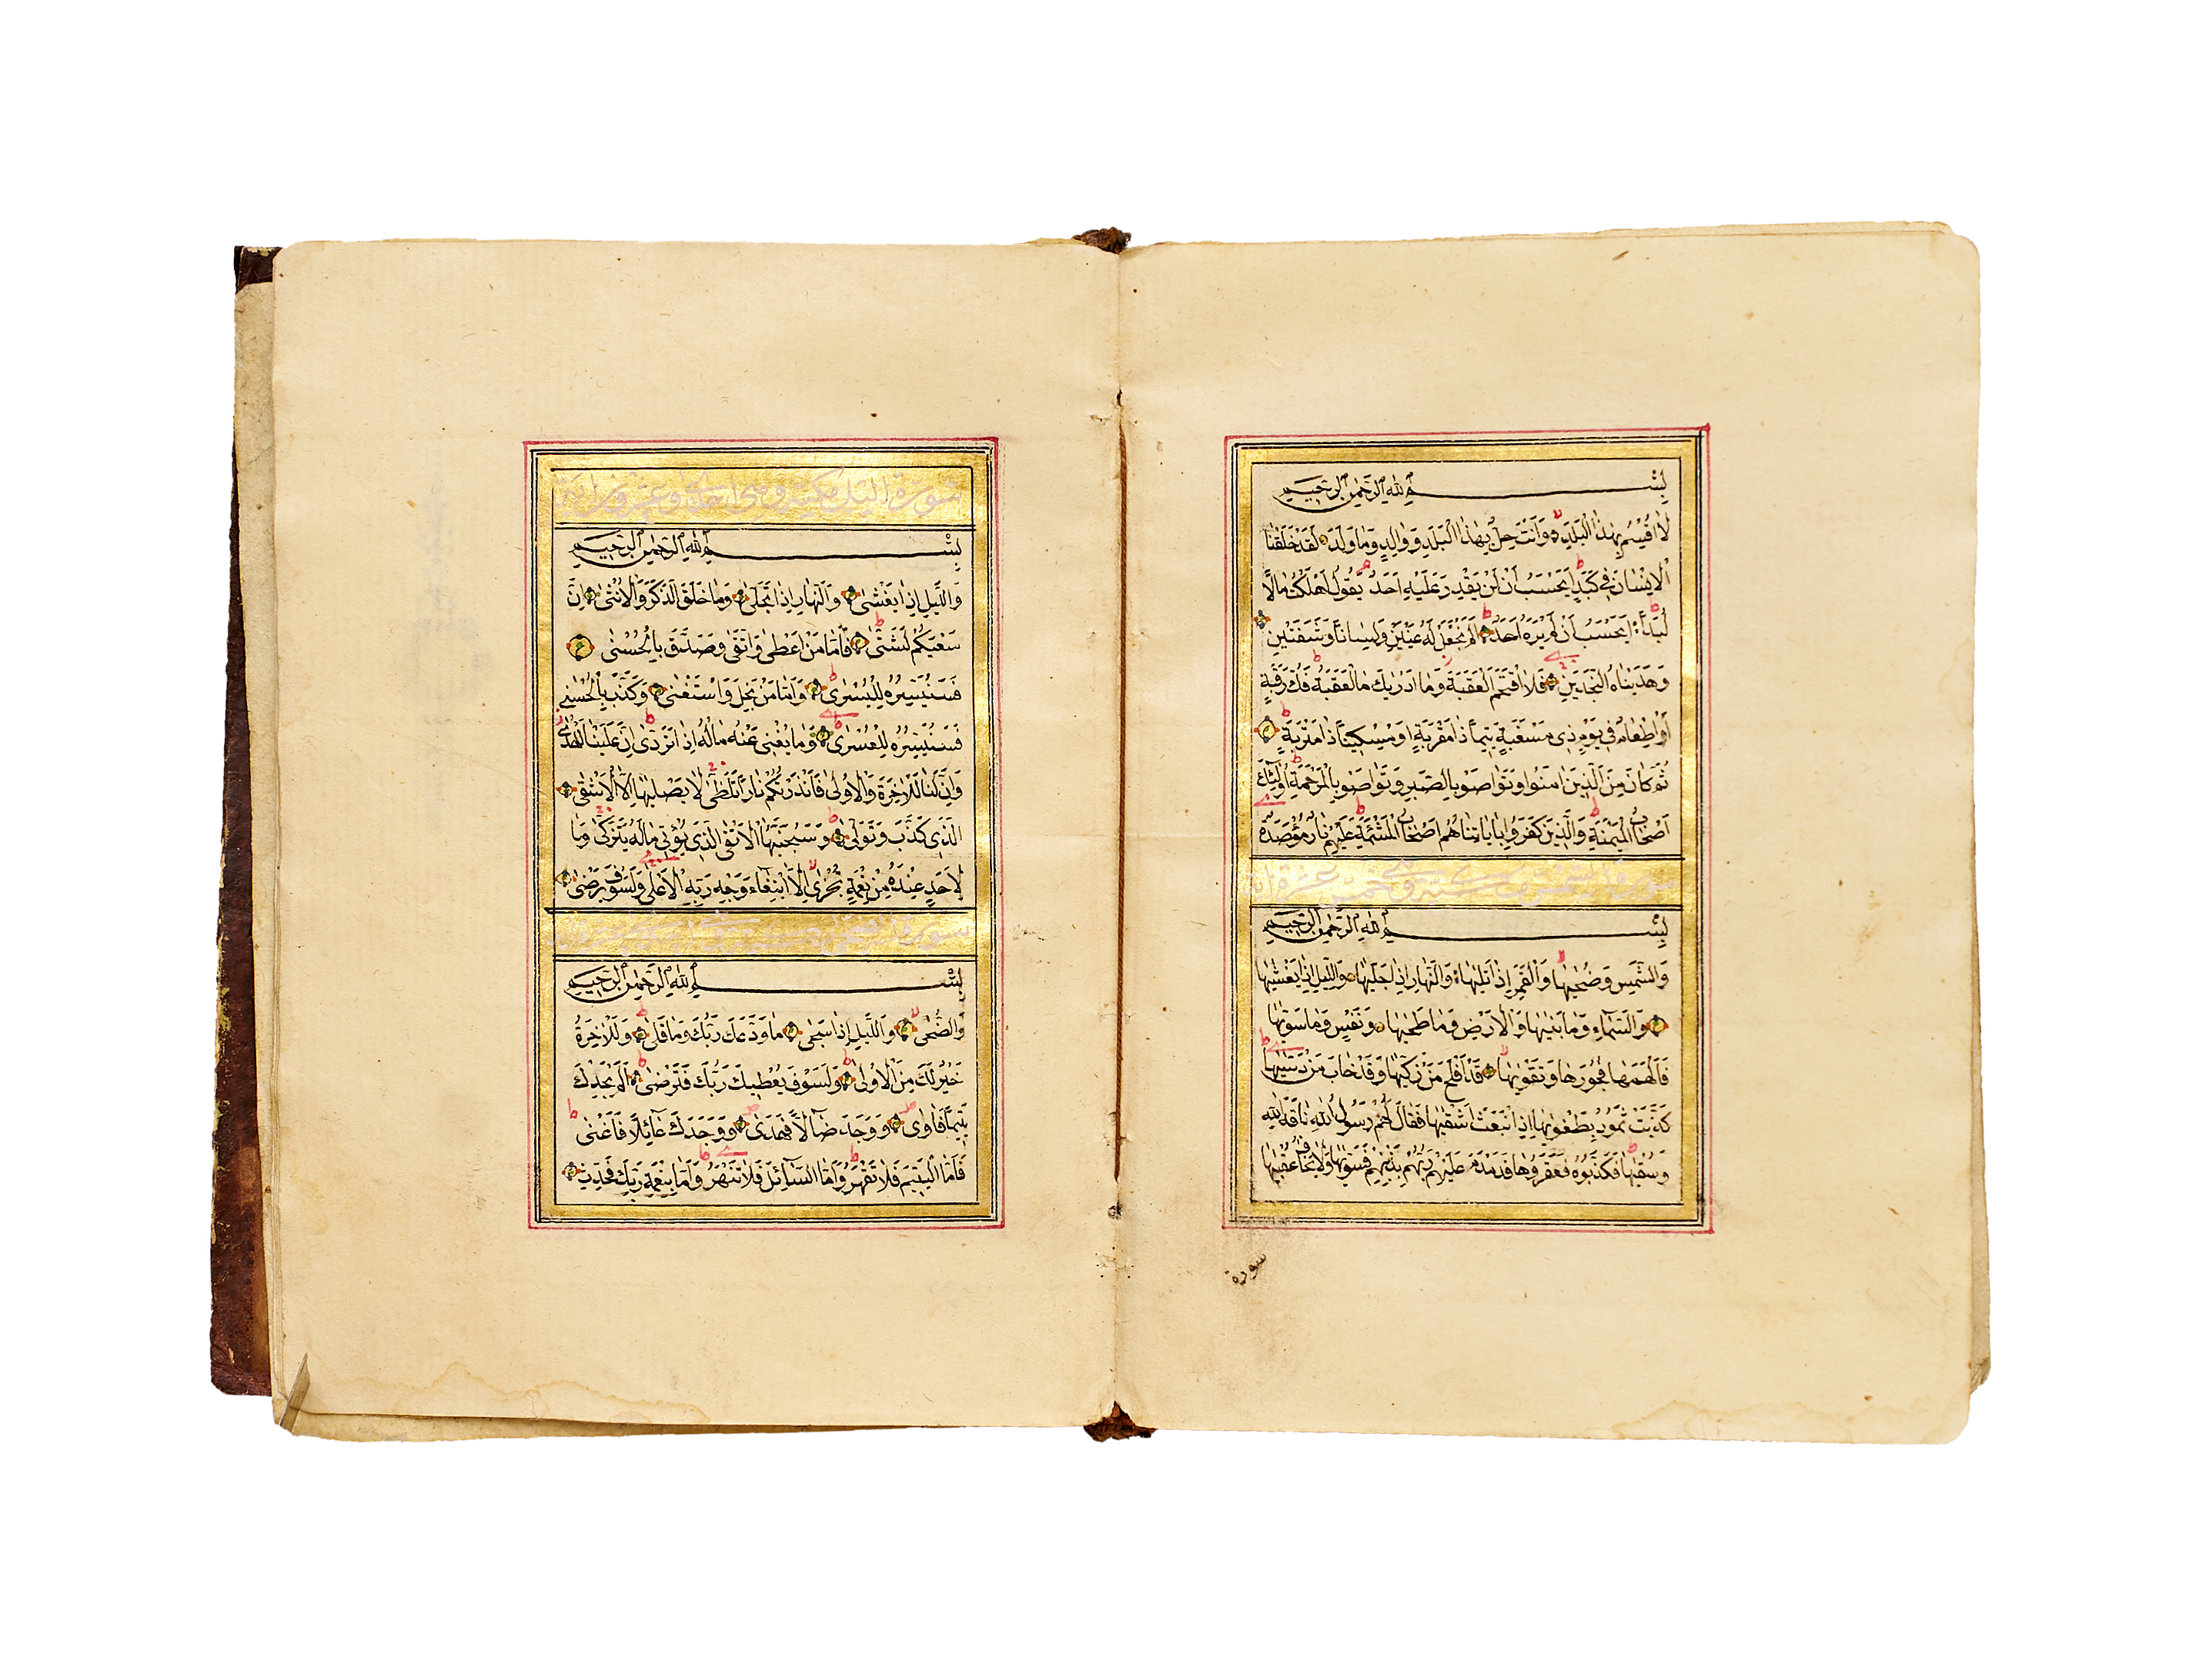 بِسْمِ اللهِ الرَّحْمٰنِ الرَّحِيمِ
لَا اُقْسِمُ بِهٰذَا الْبَلَدِ وَاَنْتَ حِلٌّ بِهٰذَا الْبَلَدِ وَوَالِدٍ وَمَا وَلَدَ لَقَدْ خَلَقْنَا
الْاِنْسَانَ فِي كَبَدٍ اَيَحْسَبُ اَنْ لَنْ يَقْدِرَ عَلَيْهِ اَحَدٌ يَقُولُ اَهْلَكْتُ مَالًا
لُبَدًا اَيَحْسَبُ اَنْ لَمْ يَرَهُ اَحَدٌ اَلَمْ نَجْعَلْ لَهُ عَيْنَيْنِ وَلِسَانًا وَشَفَتَيْنِ
وَهَدَيْنَاهُ النَّجْدَيْنِ فَلَا اقْتَحَمَ الْعَقَبَةَ وَمَا اَدْرٰيكَ مَا الْعَقَبَةُ فَكُّ رَقَبَةٍ
اَوْ اِطْعَامٌ فِي يَوْمٍ ذِي مَسْغَبَةٍ يَتِيمًا ذَا مَقْرَبَةٍ اَوْ مِسْكِينًا ذَا مَتْرَبَةٍ
ثُمَّ كَانَ مِنَ الَّذِينَ اٰمَنُوا وَتَوَاصَوْا بِالصَّبْرِ وَتَوَاصَوْا بِالْمَرْحَمَةِ اُولٰٓئِكَ
اَصْحَابُ الْمَيْمَنَةِ وَالَّذِينَ كَفَرُوا بِاٰيَاتِنَا هُمْ اَصْحَابُ الْمَشْـَٔمَةِ عَلَيْهِمْ نَارٌ مُؤْصَدَةٌ
بِسْمِ اللهِ الرَّحْمٰنِ الرَّحِيمِ
وَالشَّمْسِ وَضُحٰيهَا وَالْقَمَرِ اِذَا تَلٰيهَا وَالنَّهَارِ اِذَا جَلّٰيهَا وَاللَّيْلِ اِذَا يَغْشٰيهَا
وَالسَّمَاءِ وَمَا بَنٰيهَا وَالْاَرْضِ وَمَا طَحٰيهَا وَنَفْسٍ وَمَا سَوّٰيهَا
فَاَلْهَمَهَا فُجُورَهَا وَتَقْوٰيهَا قَدْ اَفْلَحَ مَنْ زَكّٰيهَا وَقَدْ خَابَ مَنْ دَسّٰيهَا
كَذَّبَتْ ثَمُودُ بِطَغْوٰيهَا اِذِ انْبَعَثَ اَشْقٰيهَا فَقَالَ لَهُمْ رَسُولُ اللهِ نَاقَةَ اللهِ
وَسُقْيٰهَا فَكَذَّبُوهُ فَعَقَرُوهَا فَدَمْدَمَ عَلَيْهِمْ رَبُّهُمْ بِذَنْبِهِمْ فَسَوّٰيهَا وَلَا يَخَافُ عُقْبٰيهَا
سورة
سورة الليل مكية وهي احدى وعشرون اية
بِسْمِ اللهِ الرَّحْمٰنِ الرَّحِيمِ
وَاللَّيْلِ اِذَا يَغْشٰى وَالنَّهَارِ اِذَا تَجَلّٰى وَمَا خَلَقَ الذَّكَرَ وَالْاُنْثٰى اِنَّ
سَعْيَكُمْ لَشَتّٰى فَاَمَّا مَنْ اَعْطٰى وَاتَّقٰى وَصَدَّقَ بِالْحُسْنٰى
فَسَنُيَسِّرُهُ لِلْيُسْرٰى وَاَمَّا مَنْ بَخِلَ وَاسْتَغْنٰى وَكَذَّبَ بِالْحُسْنٰى
فَسَنُيَسِّرُهُ لِلْعُسْرٰى وَمَا يُغْنِي عَنْهُ مَالُهُ اِذَا تَرَدّٰى اِنَّ عَلَيْنَا لَلْهُدٰى
وَاِنَّ لَنَا لَلْاٰخِرَةَ وَالْاُولٰى فَاَنْذَرْتُكُمْ نَارًا تَلَظّٰى لَا يَصْلٰيهَا اِلَّا الْاَشْقٰى
الَّذِي كَذَّبَ وَتَوَلّٰى وَسَيُجَنَّبُهَا الْاَتْقٰى الَّذِي يُؤْتِي مَالَهُ يَتَزَكّٰى وَمَا
لِاَحَدٍ عِنْدَهُ مِنْ نِعْمَةٍ تُجْزٰى اِلَّا ابْتِغَاءَ وَجْهِ رَبِّهِ الْاَعْلٰى وَلَسَوْفَ يَرْضٰى
بِسْمِ اللهِ الرَّحْمٰنِ الرَّحِيمِ
وَالضُّحٰى وَاللَّيْلِ اِذَا سَجٰى مَا وَدَّعَكَ رَبُّكَ وَمَا قَلٰى وَلَلْاٰخِرَةُ
خَيْرٌ لَكَ مِنَ الْاُولٰى وَلَسَوْفَ يُعْطِيكَ رَبُّكَ فَتَرْضٰى اَلَمْ يَجِدْكَ
يَتِيمًا فَاٰوٰى وَوَجَدَكَ ضَالًّا فَهَدٰى وَوَجَدَكَ عَائِلًا فَاَغْنٰى
فَاَمَّا الْيَتِيمَ فَلَا تَقْهَرْ وَاَمَّا السَّائِلَ فَلَا تَنْهَرْ وَاَمَّا بِنِعْمَةِ رَبِّكَ فَحَدِّثْ